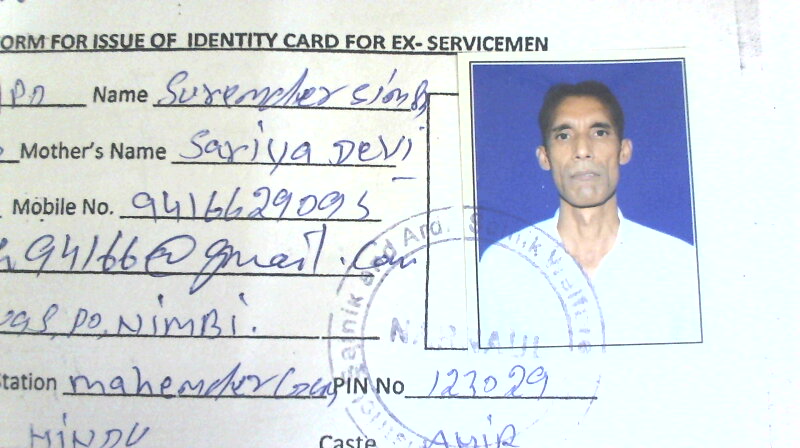 ORM FOR ISSUE OF IDENTITY CARD FOR EX- SERVICEMEN
Name Surender Singh
Mother's Name Sariya Devi
Mobile No. 9416629093
94166@gmail.com
PO, NIMBI.
Station PIN No 123029
HINDU Caste AHIR
Sainik and Ard. Sainik Welfare
NARNAUL